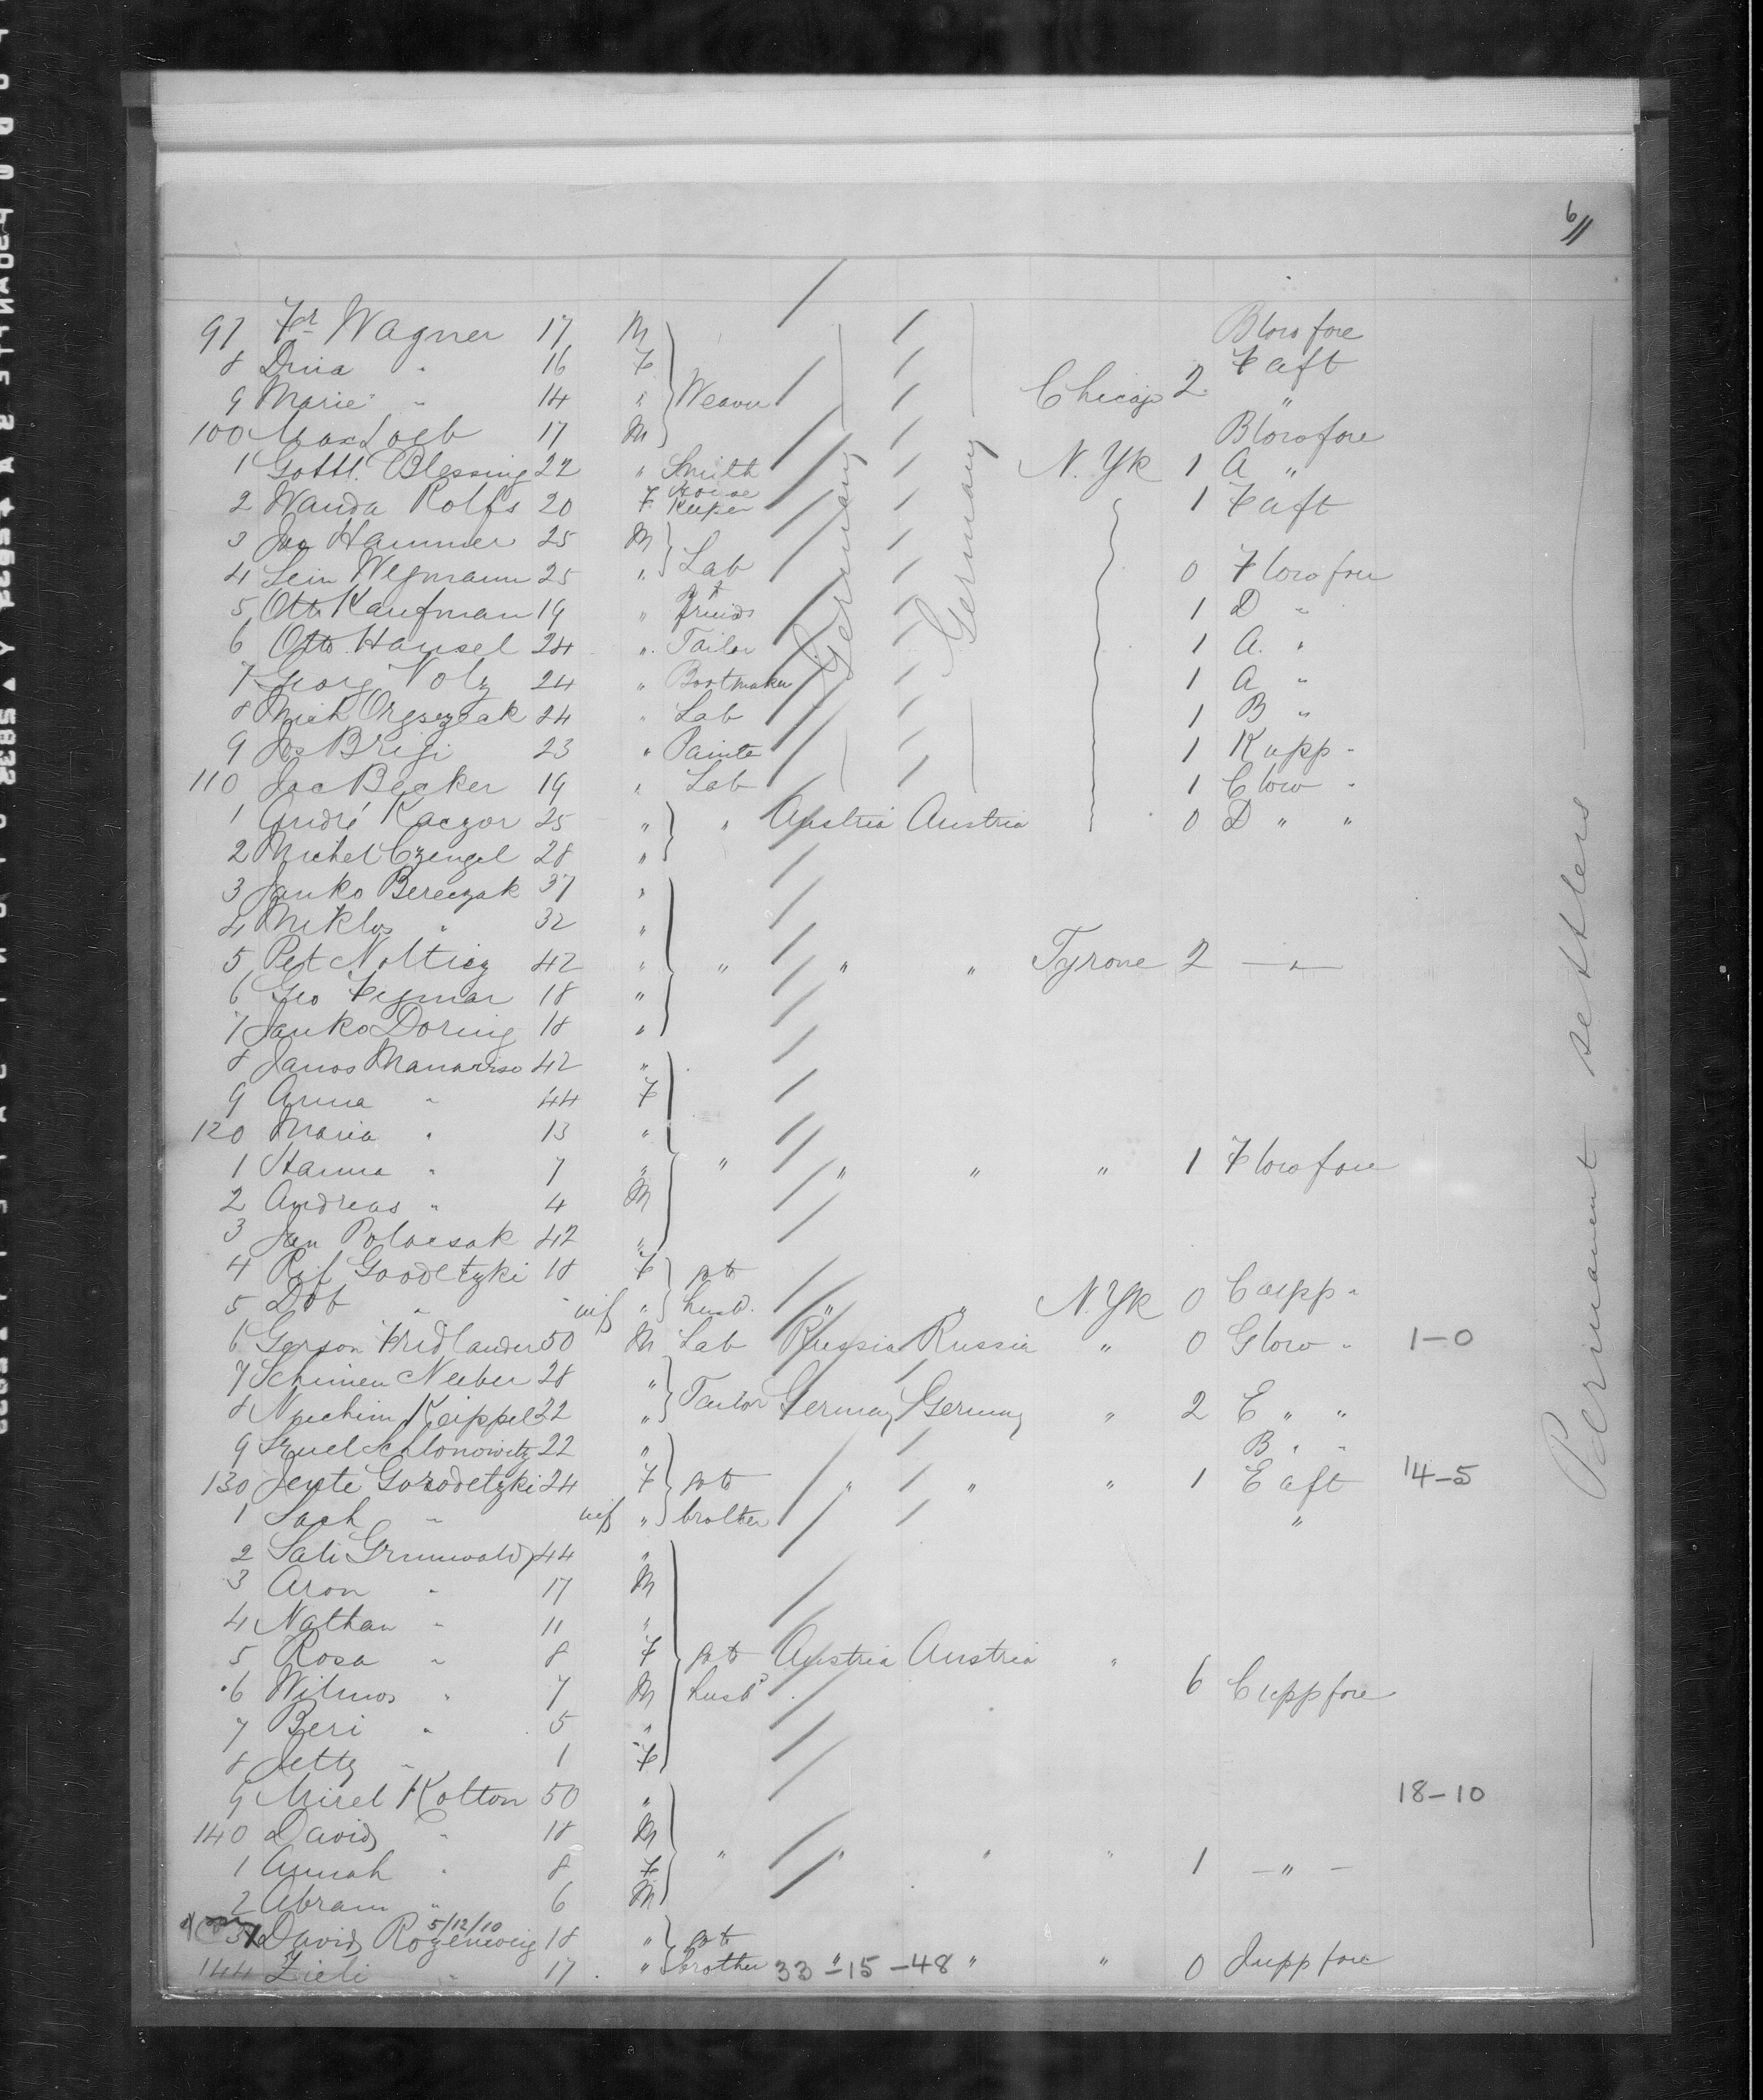 6/11
97 Fr Wagner 17 M B low fore
8 Dina " 16 F F aft
9 Marie " 14 " Weaver Chicago 2 "
100 Max Loeb 17 M B low fore
1 Gottl. Blessing 22 " Smith N. Yk 1 A "
2 Wanda Rolfs 20 F House Keeper 1 F aft
3 Hammer 25 M
4 Wegmann 25 " Lab 0 F low fore
5 Otto Kaufman 19 " friends 1 D "
6 Otto Hansel 24 " Tailor 1 A. "
7 Georg Volz 24 " Bootmaker 1 A "
8 Mich 24 " Lab 1 B "
9 Jos Brigi 23 " Painter 1 K upp "
110 Jac Becker 19 " Lab 1 C low "
Germany Germany
1 André Kaczor 25 " " Austria Austria 0 D " "
2 Michel Czengel 28 "
3 Janko Bereczak 37 "
4 Miklos " 32 "
5 Pet Nolticz 42 " " " " Tyrone 2 — " —
6 Geo 18 "
7 Janko Doring 18 "
8 Janos 42 "
9 Anna " 44 F
120 Maria " 13 "
1 Hanna " 7 " " " " " 1 F low fore
2 Andreas " 4 M
3 Jan Polacsak 42 "
4 Goodetzki 18 F to
5 Dob " inf " husb. " " N. Yk 0 C upp "
6 Gerson Fridlander 50 M Lab Russia Russia " 0 G low " 1-0
7 Schimen Neuber 28 "
8 Nochim Keippel 22 " Tailor Germany Germany " 2 E " "
9 Schlonowitz 22 " B " "
130 Jente Gorodetzki 24 F to " " " 1 E aft 14-5
1 Sach " inf " brother "
2 Sali Grunwald 44 "
3 Aron " 17 M
4 Nathan " 11 "
5 Rosa " 8 F to Austria Austria "
6 Wilmos " 7 M husbd 6 C upp fore
7 Beri " 5 "
8 Jetty " 1 F
9 Mirel Kolton 50 " 18-10
140 David " 18 M
1 Annah " 8 F " " " " 1 — " —
2 Abram " 6 M
5/12/10
3 David Rozenweig 18 " to
144 Zieli " 17 " brother 33 - 15 - 48 " " 0 J upp fore
Permanent settlers